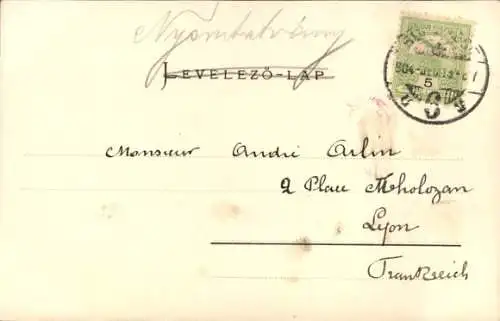 Nyomtatvány
LEVELEZŐ-LAP
904
5
6
Monsieur André Arlin
2 Place Meholozan
Lyon
Frankreich